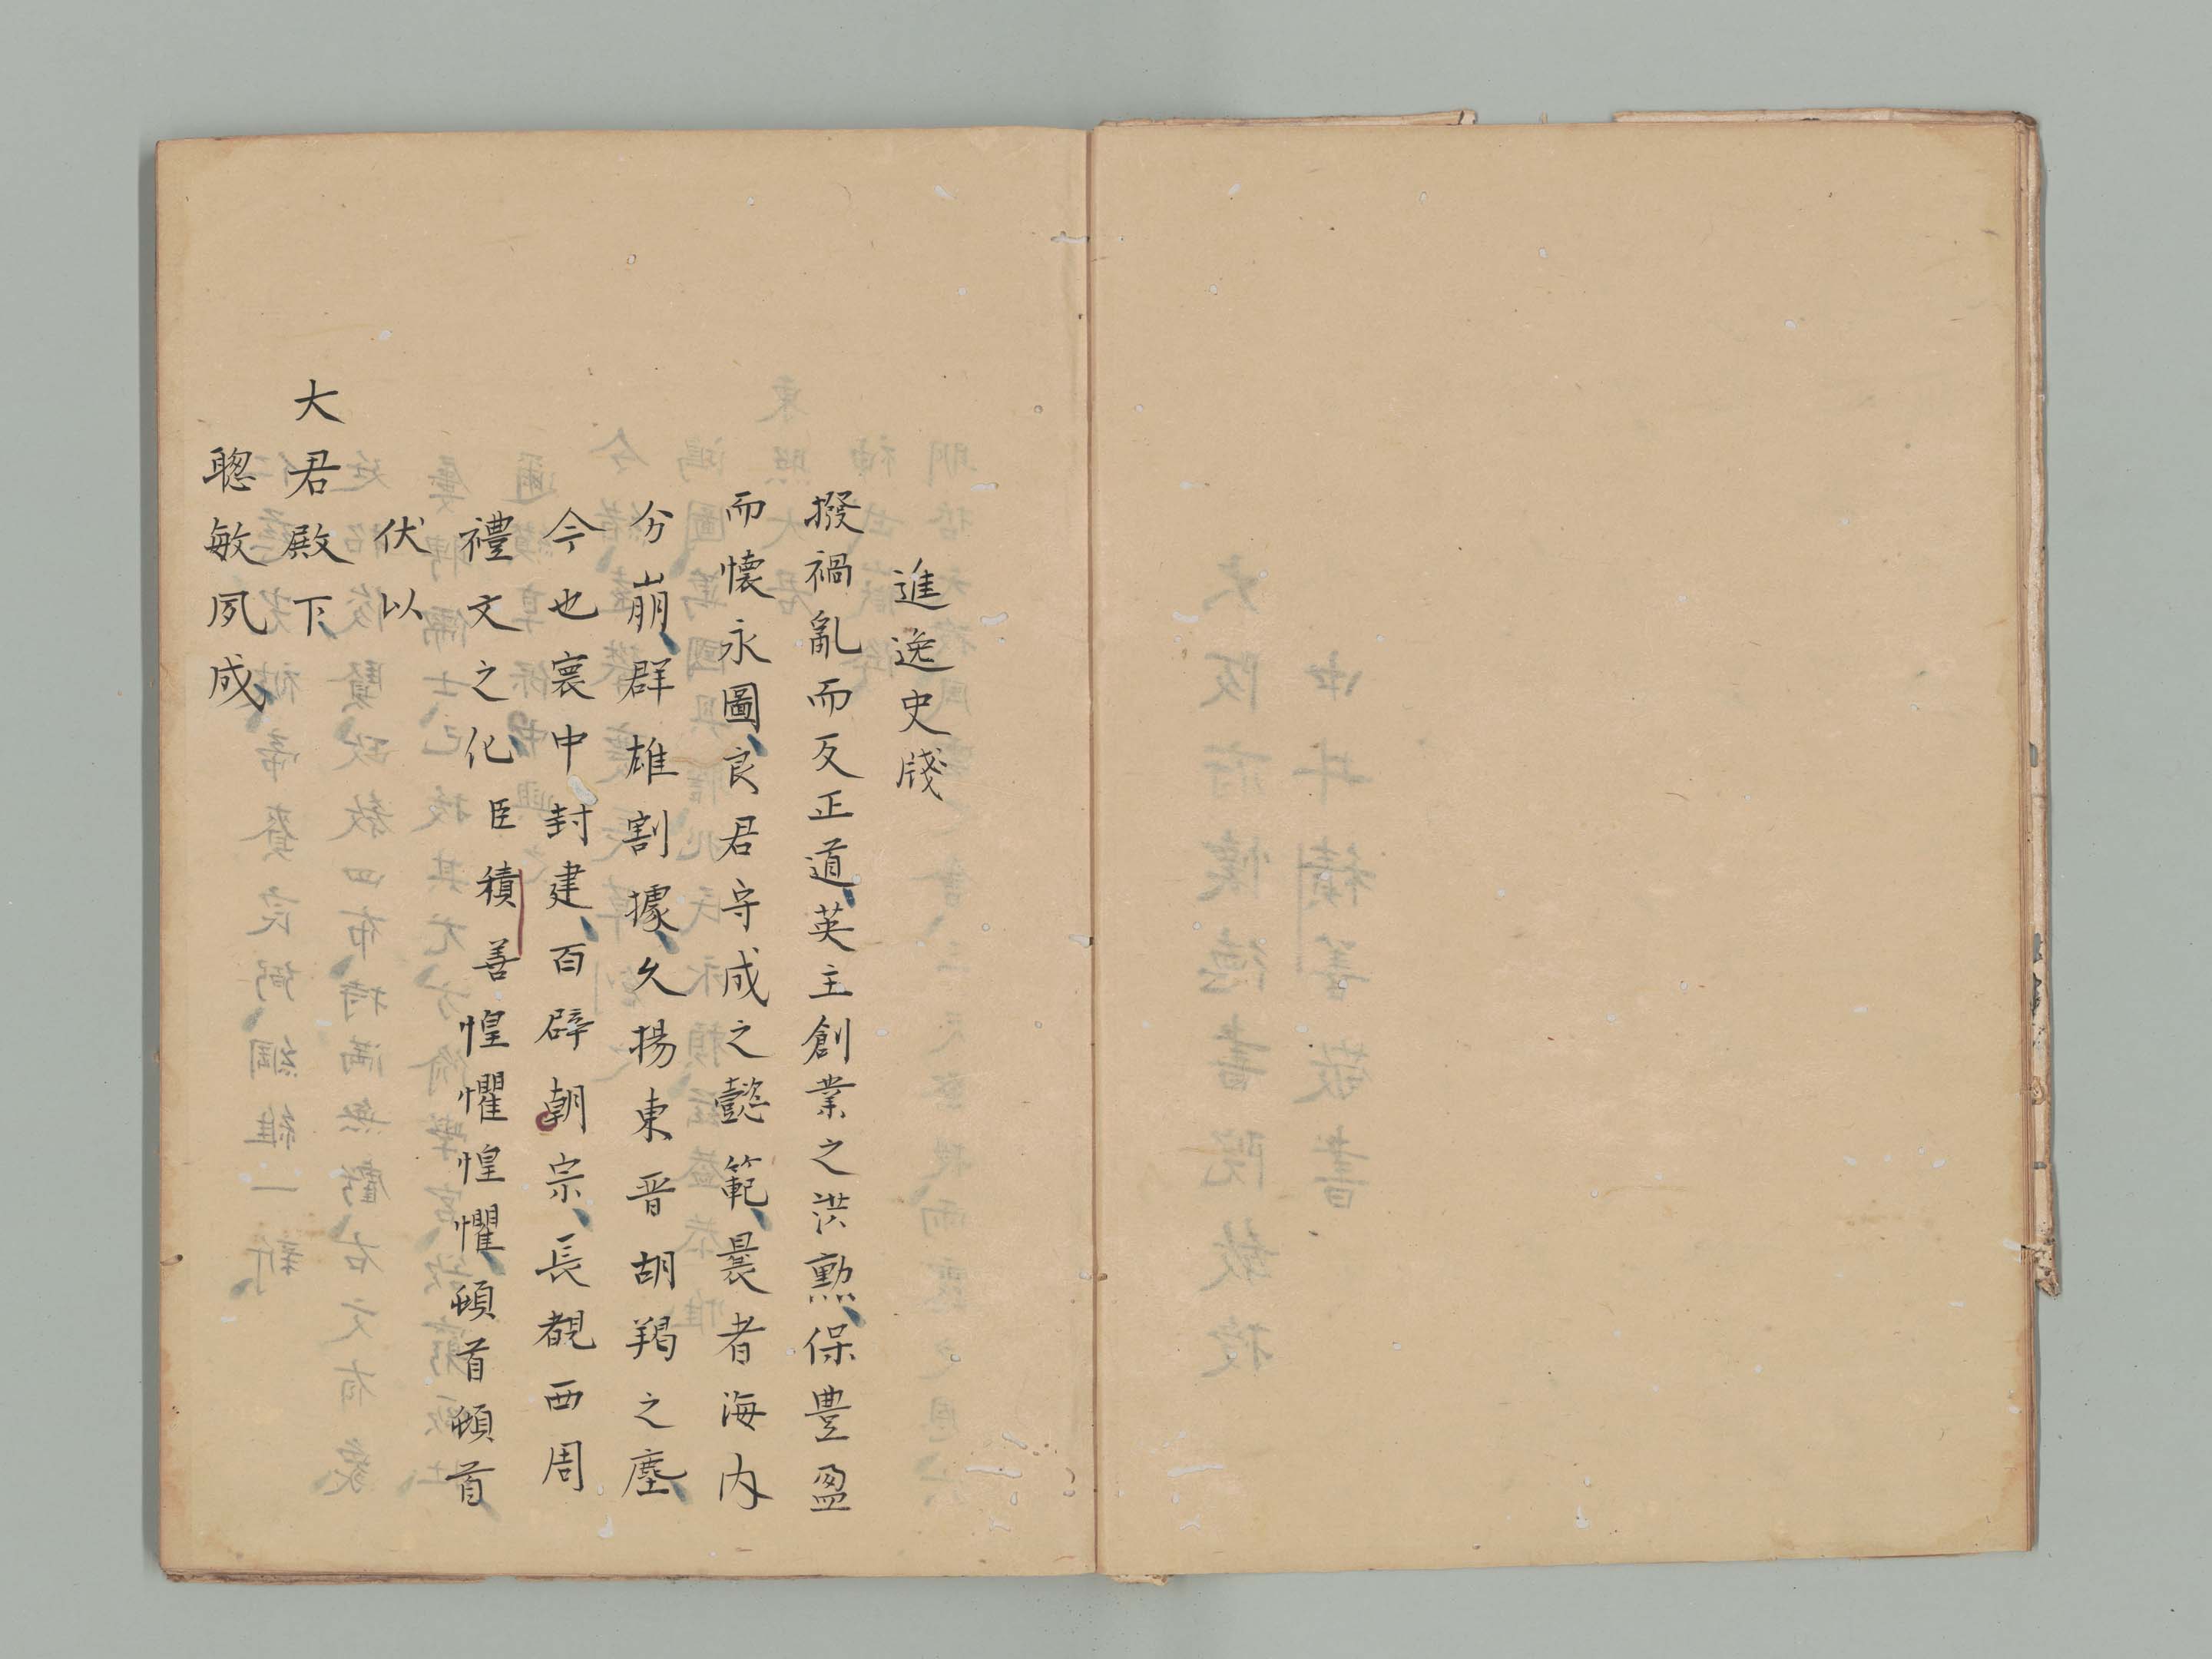 進逸史牋
撥禍亂而反正道、英主創業之洪勲、保豊盈
而懷永圖、良君守成之懿範、曩者海内
分崩、群雄割據、久揚東晋胡羯之塵、
今也寰中封建、百辟朝宗、長覩西周
禮文之化臣積善惶懼惶懼、頓首頓首
伏以
大君殿下、
聰敏夙成、